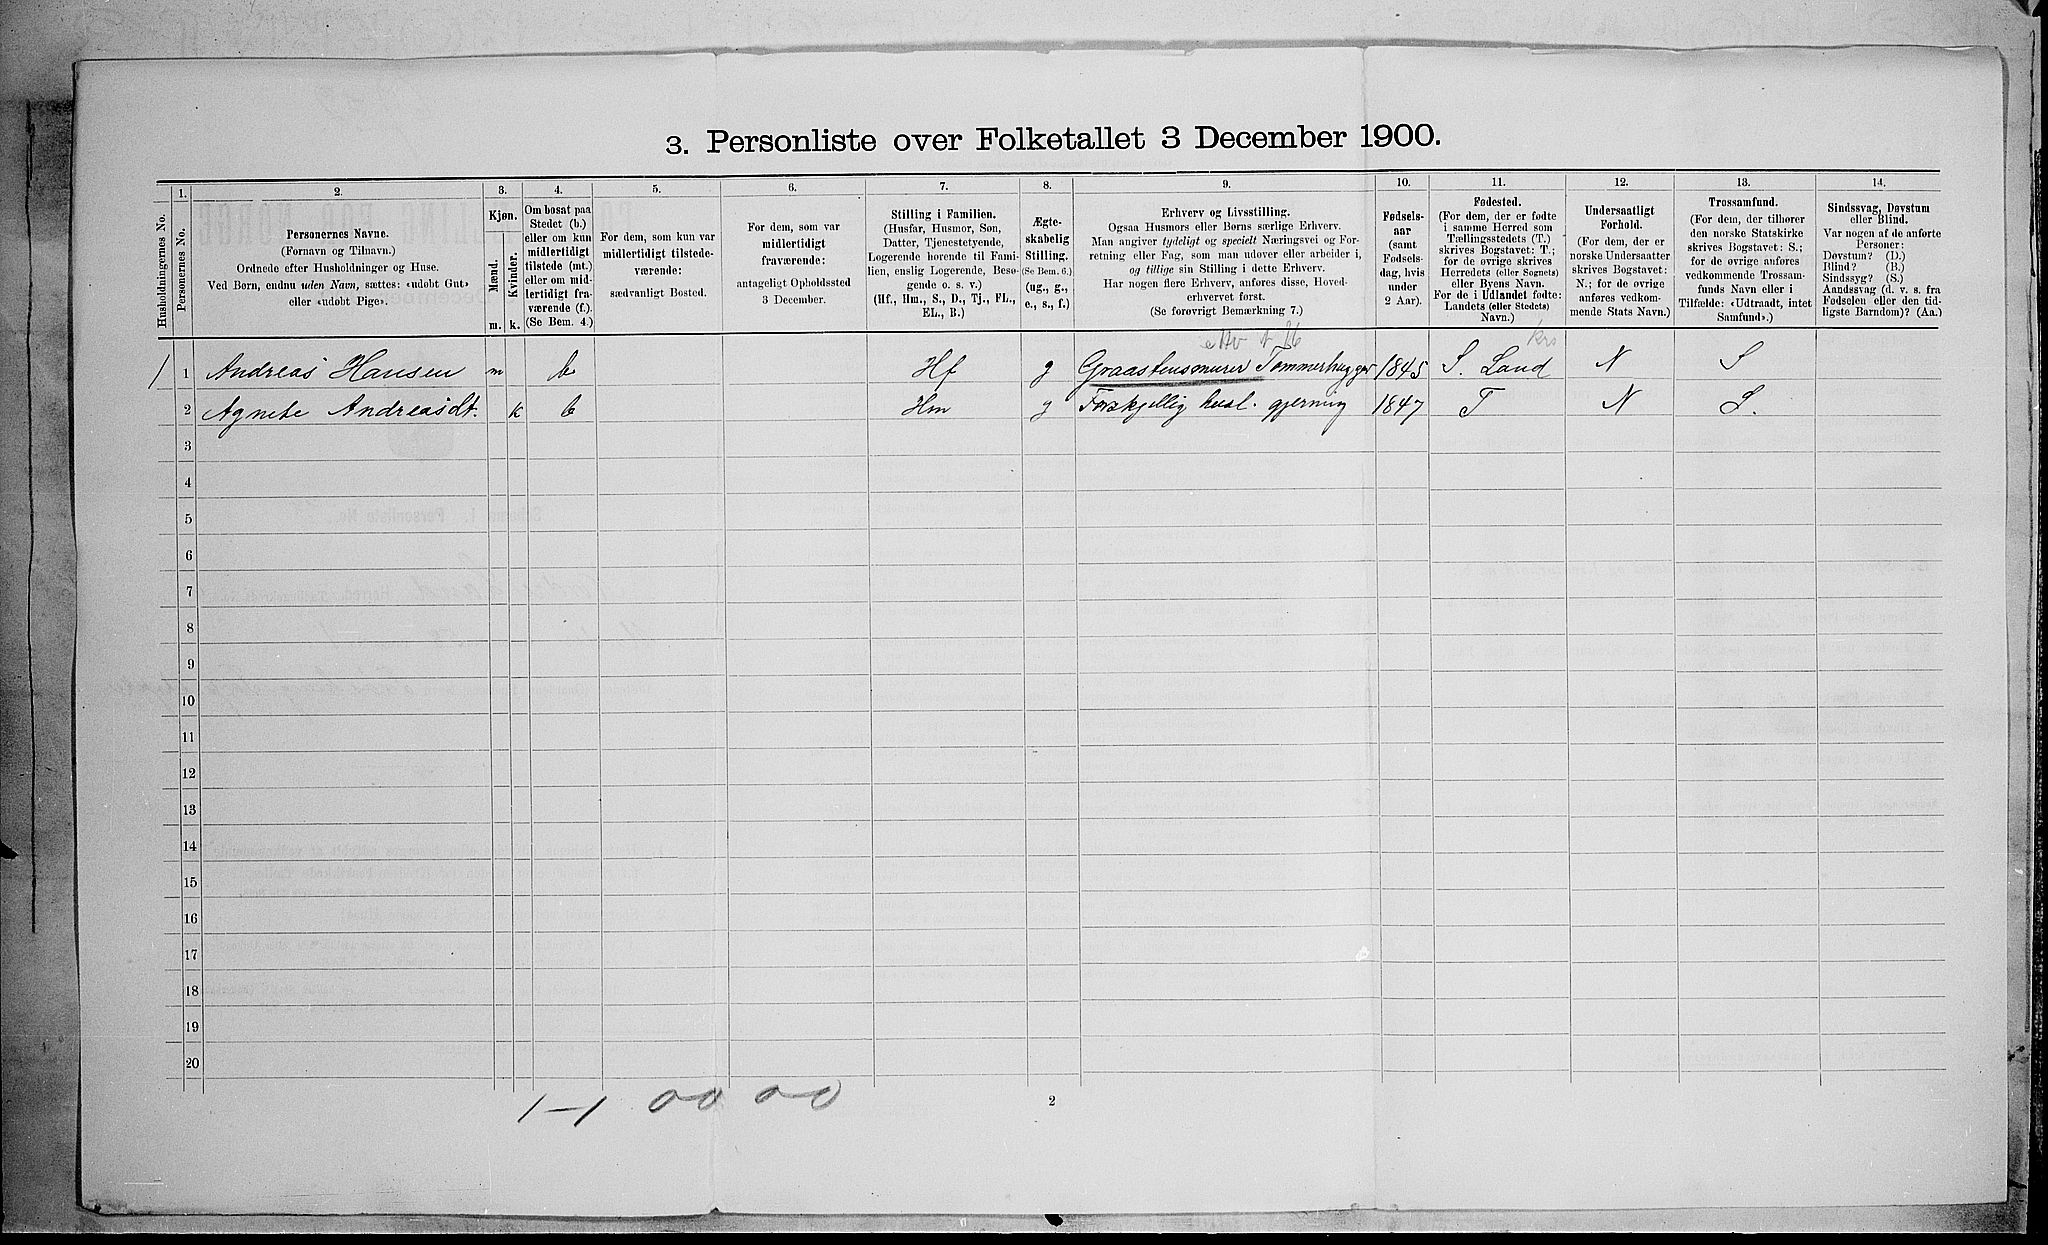 3. Personliste over Folketallet 3 December 1900.
1. 2. 3. 4. 5. 6. 7. 8. 9. 10. 11. 12. 13. 14.
Husholdningernes No.
Personernes No.
Personernes Navne.
(Fornavn og Tilnavn.)
Ordnede efter Husholdninger og Huse.
Ved Børn, endnu uden Navn, sættes: «udøbt Gut»
eller «udøbt Pige».
Kjøn.
Mænd.
Kvinder.
m. k.
Om bosat paa
Stedet (b.)
eller om kun
midlertidigt
tilstede (mt.)
eller om mid-
lertidigt fra-
værende (f.).
(Se Bem. 4.)
For dem, som kun var
midlertidigt tilstede-
værende:
sædvanligt Bosted.
For dem, som var
midlertidigt
fraværende:
antageligt Opholdssted
3 December.
Stilling i Familien.
(Husfar, Husmor, Søn,
Datter, Tjenestetyende,
Logerende hørende til Fami-
lien, enslig Logerende, Besø-
gende o. s. v.)
(Hf., Hm., S., D., Tj., FL.,
EL., B.)
Ægte-
skabelig
Stilling.
(Se Bem. 6.)
(ug., g.,
e., s., f.)
Erhverv og Livsstilling.
Ogsaa Husmors eller Børns særlige Erhverv.
Man angiver tydeligt og specielt Næringsvei og For-
retning eller Fag, som man udøver eller arbeider i,
og tillige sin Stilling i dette Erhverv.
Har nogen flere Erhverv, anføres disse, Hoved-
erhvervet først.
(Se forøvrigt Bemærkning 7.)
Fødsels-
aar
(samt
Fødsels-
dag, hvis
under
2 Aar).
Fødested.
(For dem, der er fødte
i samme Herred som
Tællingsstedets (T.)
skrives Bogstavet: T.;
for de øvrige skrives
Herredets (eller Sognets)
eller Byens Navn.
For de i Udlandet fødte:
Landets (eller Stedets)
Navn.)
Undersaatligt
Forhold.
(For dem, der er
norske Undersaatter
skrives Bogstavet:
N.; for de øvrige
anføres vedkom-
mende Stats Navn.)
Trossamfund.
(For dem, der tilhører
den norske Statskirke
skrives Bogstavet: S.;
for de øvrige anføres
vedkommende Trossam-
funds Navn eller i
Tilfælde: «Udtraadt, intet
Samfund».)
Sindssvag, Døvstum
eller Blind.
Var nogen af de anførte
Personer:
Døvstum? (D.)
Blind? (B.)
Sindssyg? (S.)
Aandssvag (d. v. s. fra
Fødselen eller den tid-
ligste Barndom)? (Aa.)
krs
1 1 Andreas Hansen m b Hf g Graastensmurer Tømmerhugger 1845 S. Land N S
2 Agnete Andreasdt. k b Hm g Forskjellig husl. gjerning 1847 T N S.
3
4
5
6
7
8
9
10
11
12
13
14
15
16
17
18
19
20
1-1 00 00
2